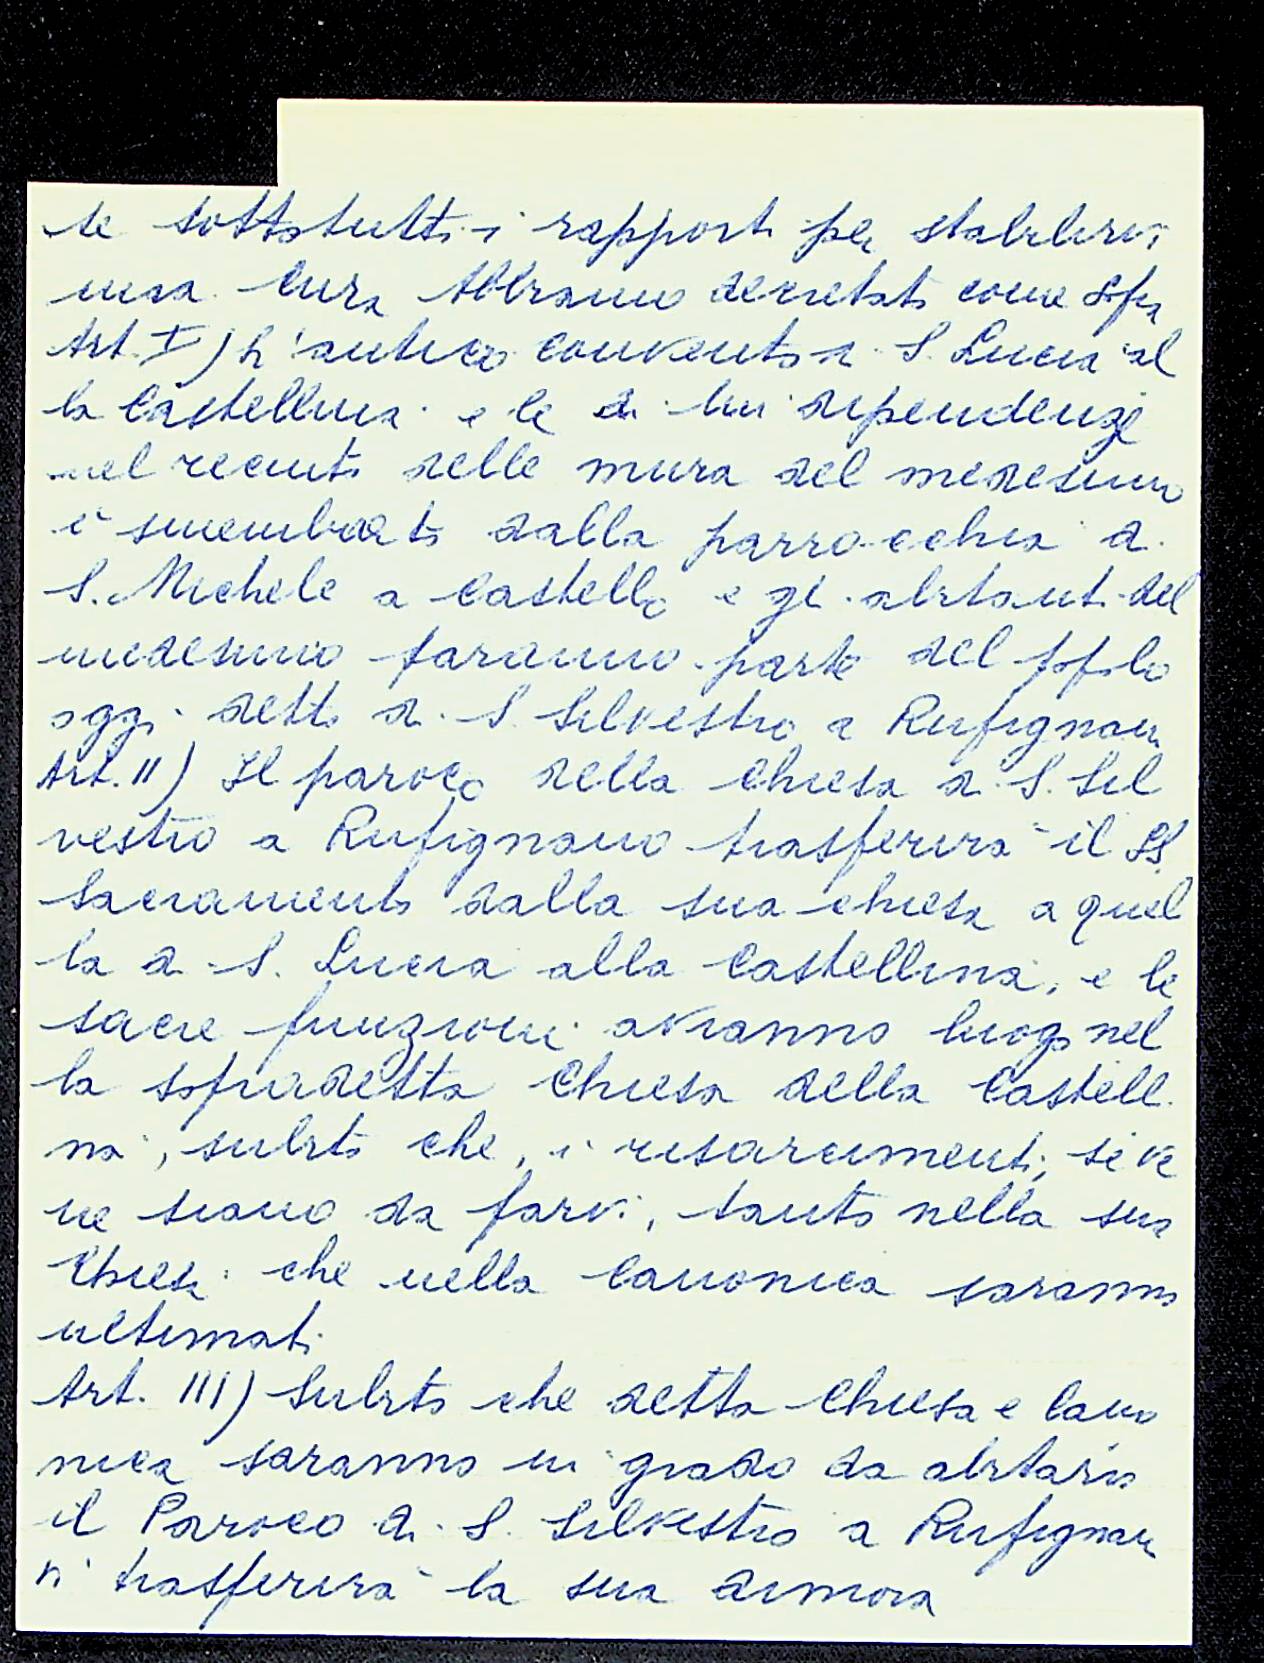 te sotto tutti i rapporti per stabilirvi
una Cura Abbiamo decretato come sopra
Art. I) L'antico convento di S. Lucia al
la Castellina e le di lui dipendenze
nel recinto delle mura del medesimo
è smembrato dalla parrocchia di
S. Michele a Castello e gli abitanti del
medesimo faranno parte del popolo
oggi detto di S. Silvestro a Rufignano
Art. II) Il paroco della Chiesa di S. Sil
vestro a Rufignano trasferirà il SS.
Sacramento dalla sua chiesa a quel
la di S. Lucia alla Castellina, e le
sacre funzioni avranno luogo nel
la sopradetta Chiesa della Castelli
na, subito che, i risarcimenti, se ve
ne siano da farvi, tanto nella sua
Chiesa che nella Canonica saranno
ultimati.
Art. III) Subito che detta Chiesa e Cano
nica saranno in grado da abitarsi
il Paroco di S. Silvestro a Rufignano
vi trasferirà la sua dimora